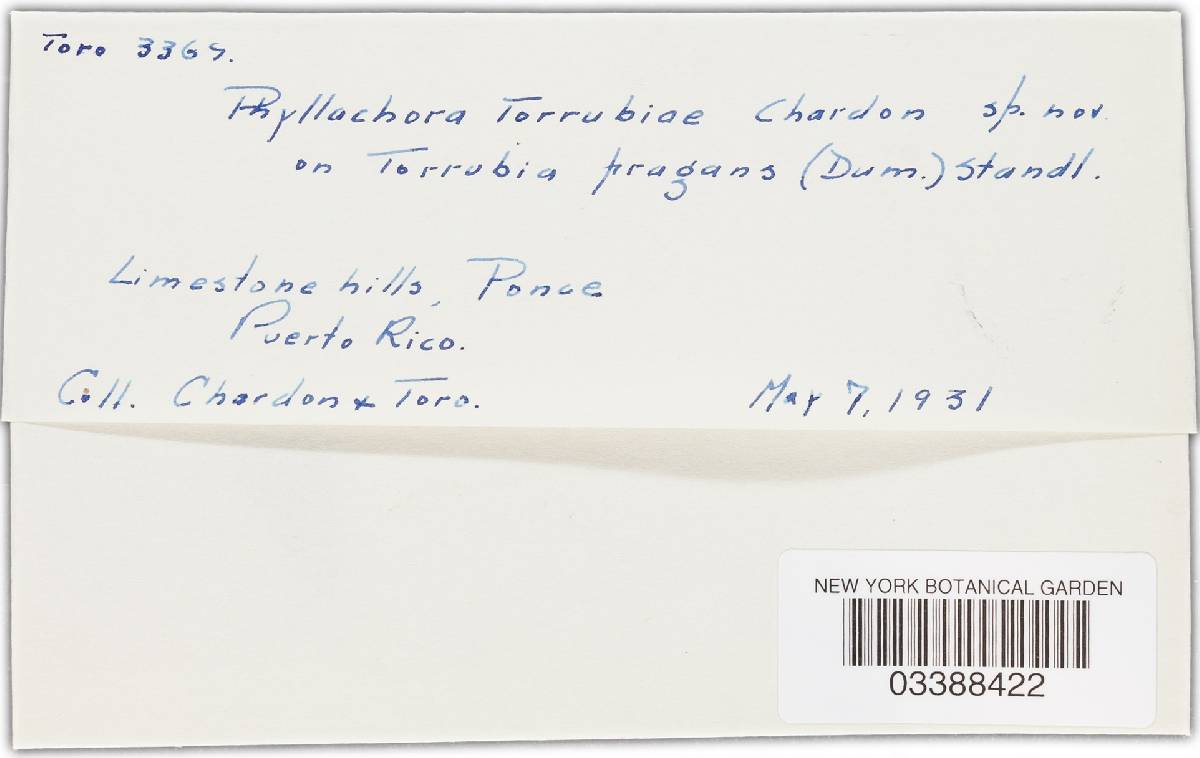 Toro 3369.
Phyllachora Torrubiae Chardon sp. nov.
on Torrubia fragans (Dum.) Standl.
Limestone hills, Ponce
Puerto Rico.
Coll. Chardon & Toro.
May 7, 1931
NEW YORK BOTANICAL GARDEN
03388422